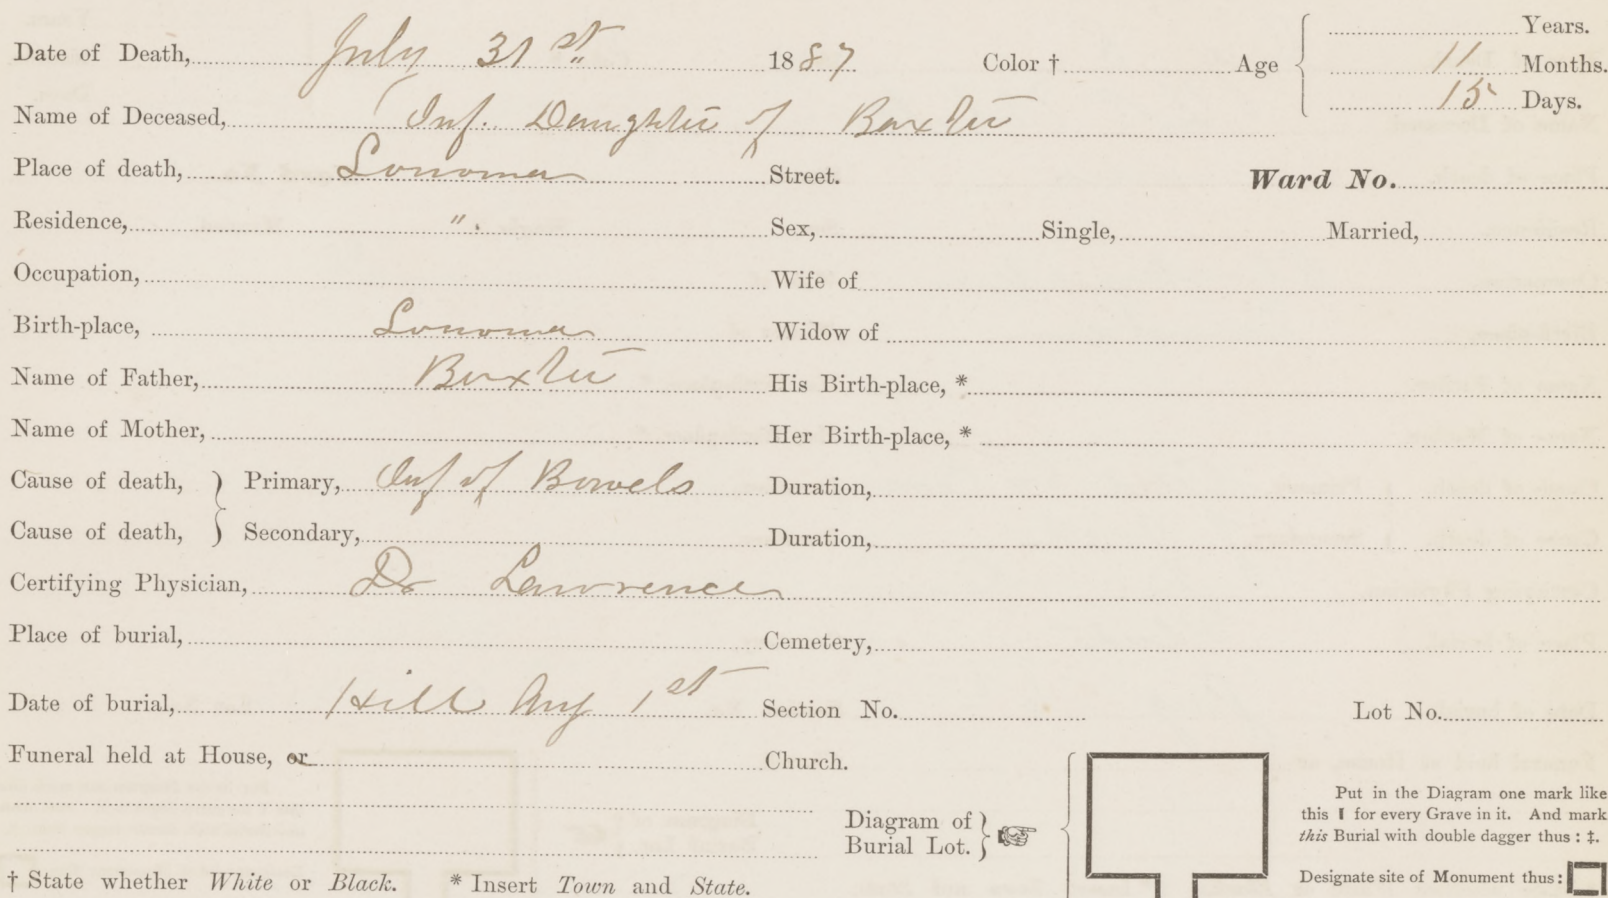 Years.
Date of Death, July 31st 1887. Color † Age 11 Months.
15 Days.
Name of Deceased, Inf. Daughter of Baxter
Place of death, Sonoma Street. Ward No.
Residence, " Sex, Single, Married,
Occupation, Wife of
Birth-place, Sonoma Widow of
Name of Father, Baxter His Birth-place, *
Name of Mother, Her Birth-place, *
Cause of death, } Primary, Inf of Bowels Duration,
Cause of death, } Secondary, Duration,
Certifying Physician, Dr Lawrence
Place of burial, Cemetery,
Date of burial, Hill Aug 1st Section No. Lot No.
Funeral held at House, or Church.
Diagram of
Burial Lot. }
Put in the Diagram one mark like
this I for every Grave in it. And mark
this Burial with double dagger thus : ‡.
Designate site of Monument thus :
† State whether White or Black. * Insert Town and State.